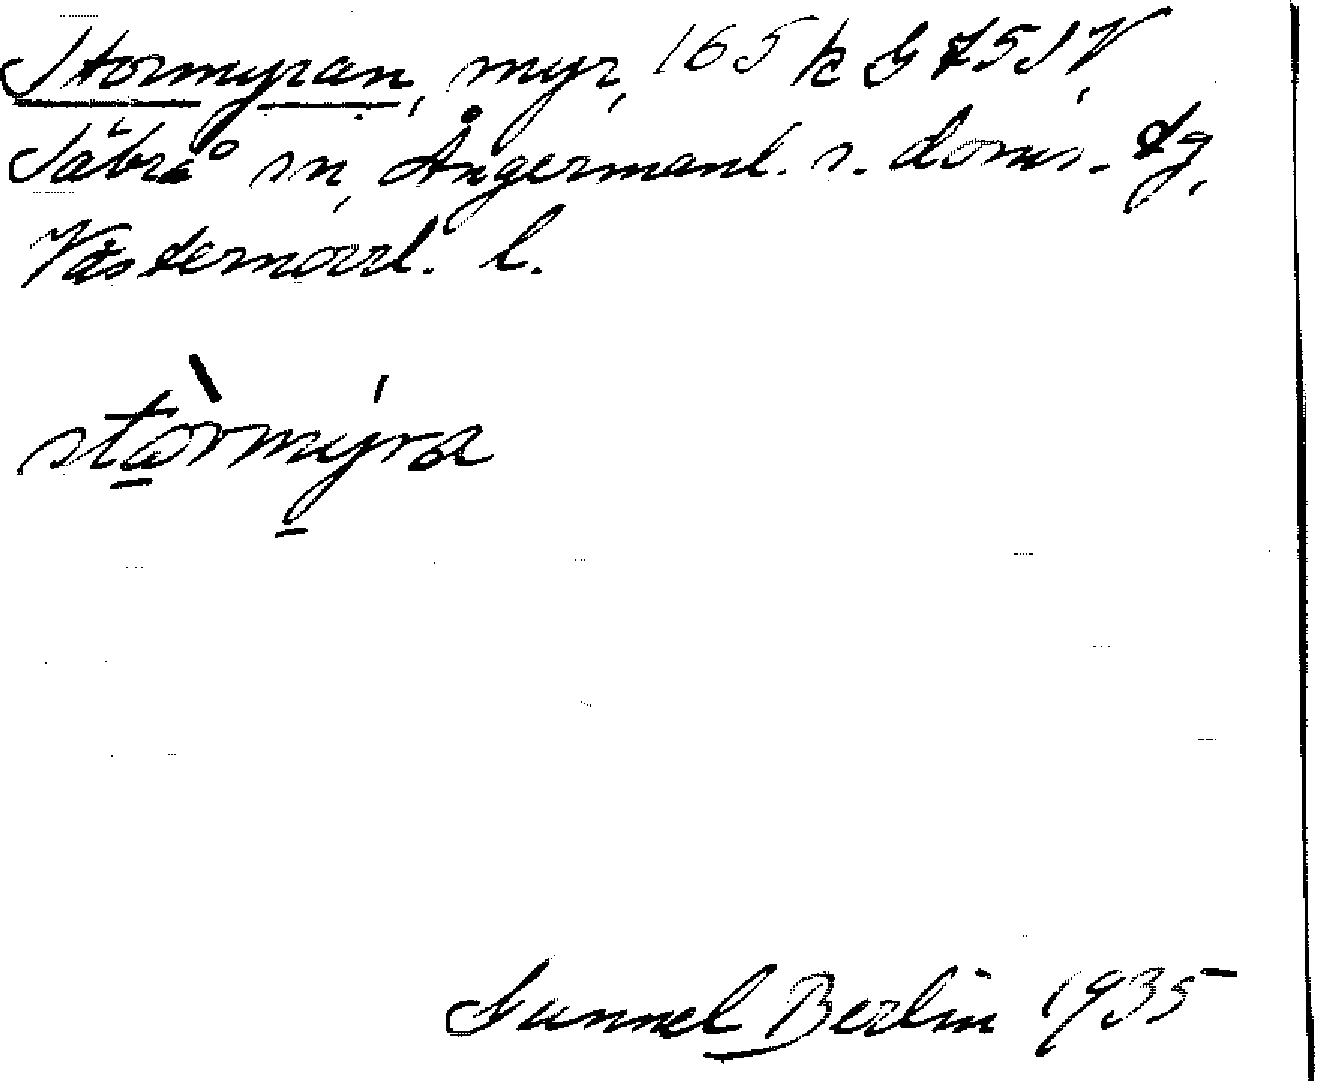 Stormyran, myr, 165 k G 751V,
Säbrå sn, Ångermanl. s. doms. tg,
Västernorrl. l.
stòrmýra
Gunnel Berlin 1935